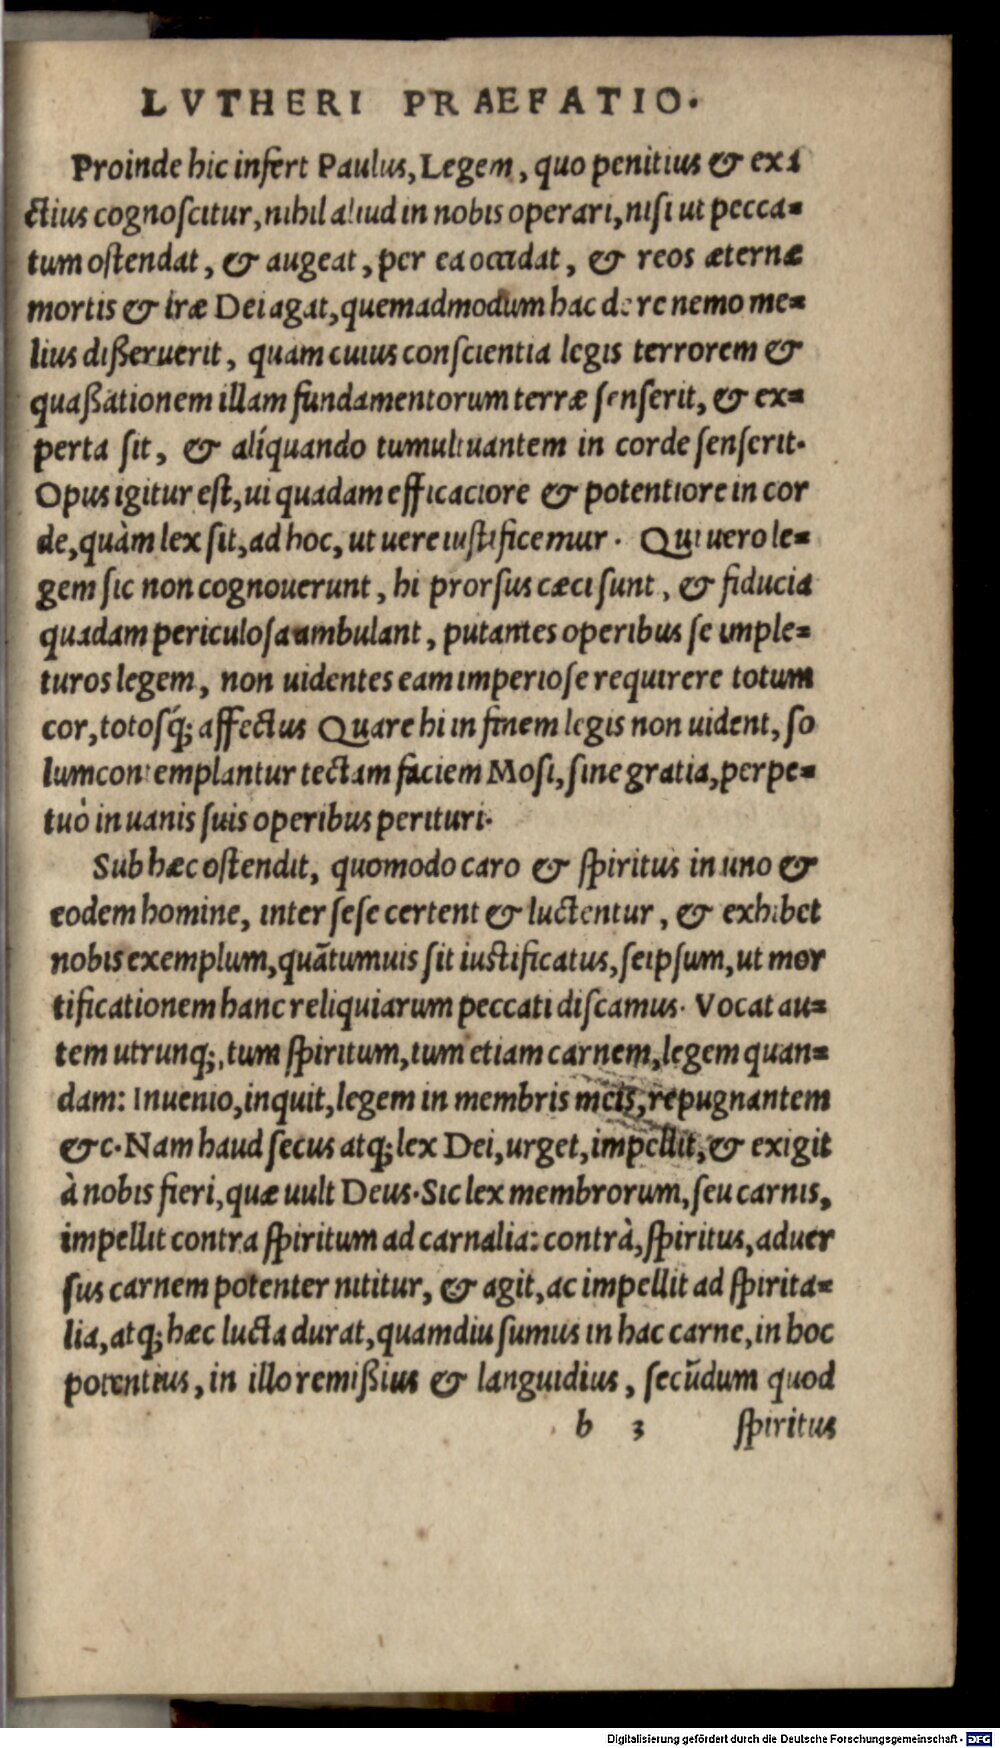 LVTHERI PRAEFATIO.
Proinde hic infert Paulus, Legem, quo penitius & exa
ctius cognoscitur, nihil aliud in nobis operari, nisi ut pecca=
tum ostendat, & augeat, per ea occidat, & reos æternæ
mortis & iræ Dei agat, quemadmodum hac de re nemo me=
lius dißeruerit, quam cuius conscientia legis terrorem &
quaßationem illam fundamentorum terræ senserit, & ex=
perta sit, & aliquando tumultuantem in corde senserit.
Opus igitur est, ui quadam efficaciore & potentiore in cor
de, quàm lex sit, ad hoc, ut uere iustificemur. Qui uero le=
gem sic non cognouerunt, hi prorsus cæci sunt, & fiducia
quadam periculosa ambulant, putantes operibus se imple=
turos legem, non uidentes eam imperiose requirere totum
cor, totosq́; affectus Quare hi in finem legis non uident, so
lum contemplantur tectam faciem Mosi, sine gratia, perpe=
tuò in uanis suis operibus perituri.
Sub hæc ostendit, quomodo caro & spiritus in uno &
eodem homine, inter sese certent & luctentur, & exhibet
nobis exemplum, quātumuis sit iustificatus, seipsum, ut mor
tificationem hanc reliquiarum peccati discamus. Vocat au=
tem utrunq;, tum spiritum, tum etiam carnem, legem quan=
dam: Inuenio, inquit, legem in membris meis, repugnantem
&c. Nam haud secus atq; lex Dei, urget, impellit, & exigit
à nobis fieri, quæ uult Deus. Sic lex membrorum, seu carnis,
impellit contra spiritum ad carnalia: contrà, spiritus, aduer
sus carnem potenter nititur, & agit, ac impellit ad spirita=
lia, atq; hæc lucta durat, quamdiu sumus in hac carne, in hoc
potentius, in illo remißius & languidius, secūdum quod
b 3 spiritus
Digitalisierung gefördert durch die Deutsche Forschungsgemeinschaft - DFG